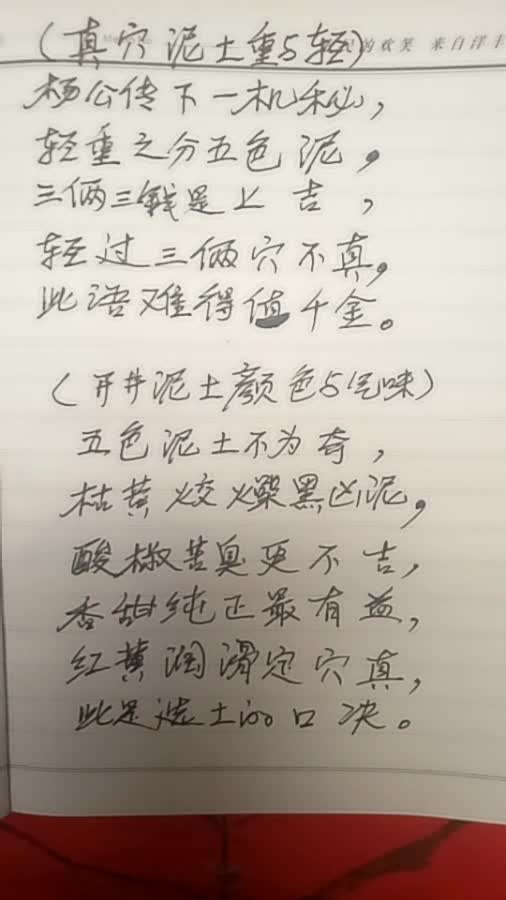 (真穴泥土重与轻) 的欢笑 来自洋丰
杨公传下一机秘，
轻重之分五色泥。
三俩三钱是上吉，
轻过三俩穴不真，
此语难得值千金。
(开井泥土颜色与气味)
五色泥土不为奇，
枯黄焦燥黑凶泥，
酸椒苦臭更不吉，
香甜纯正最有益，
红黄润滑定穴真，
此是选土的口决。